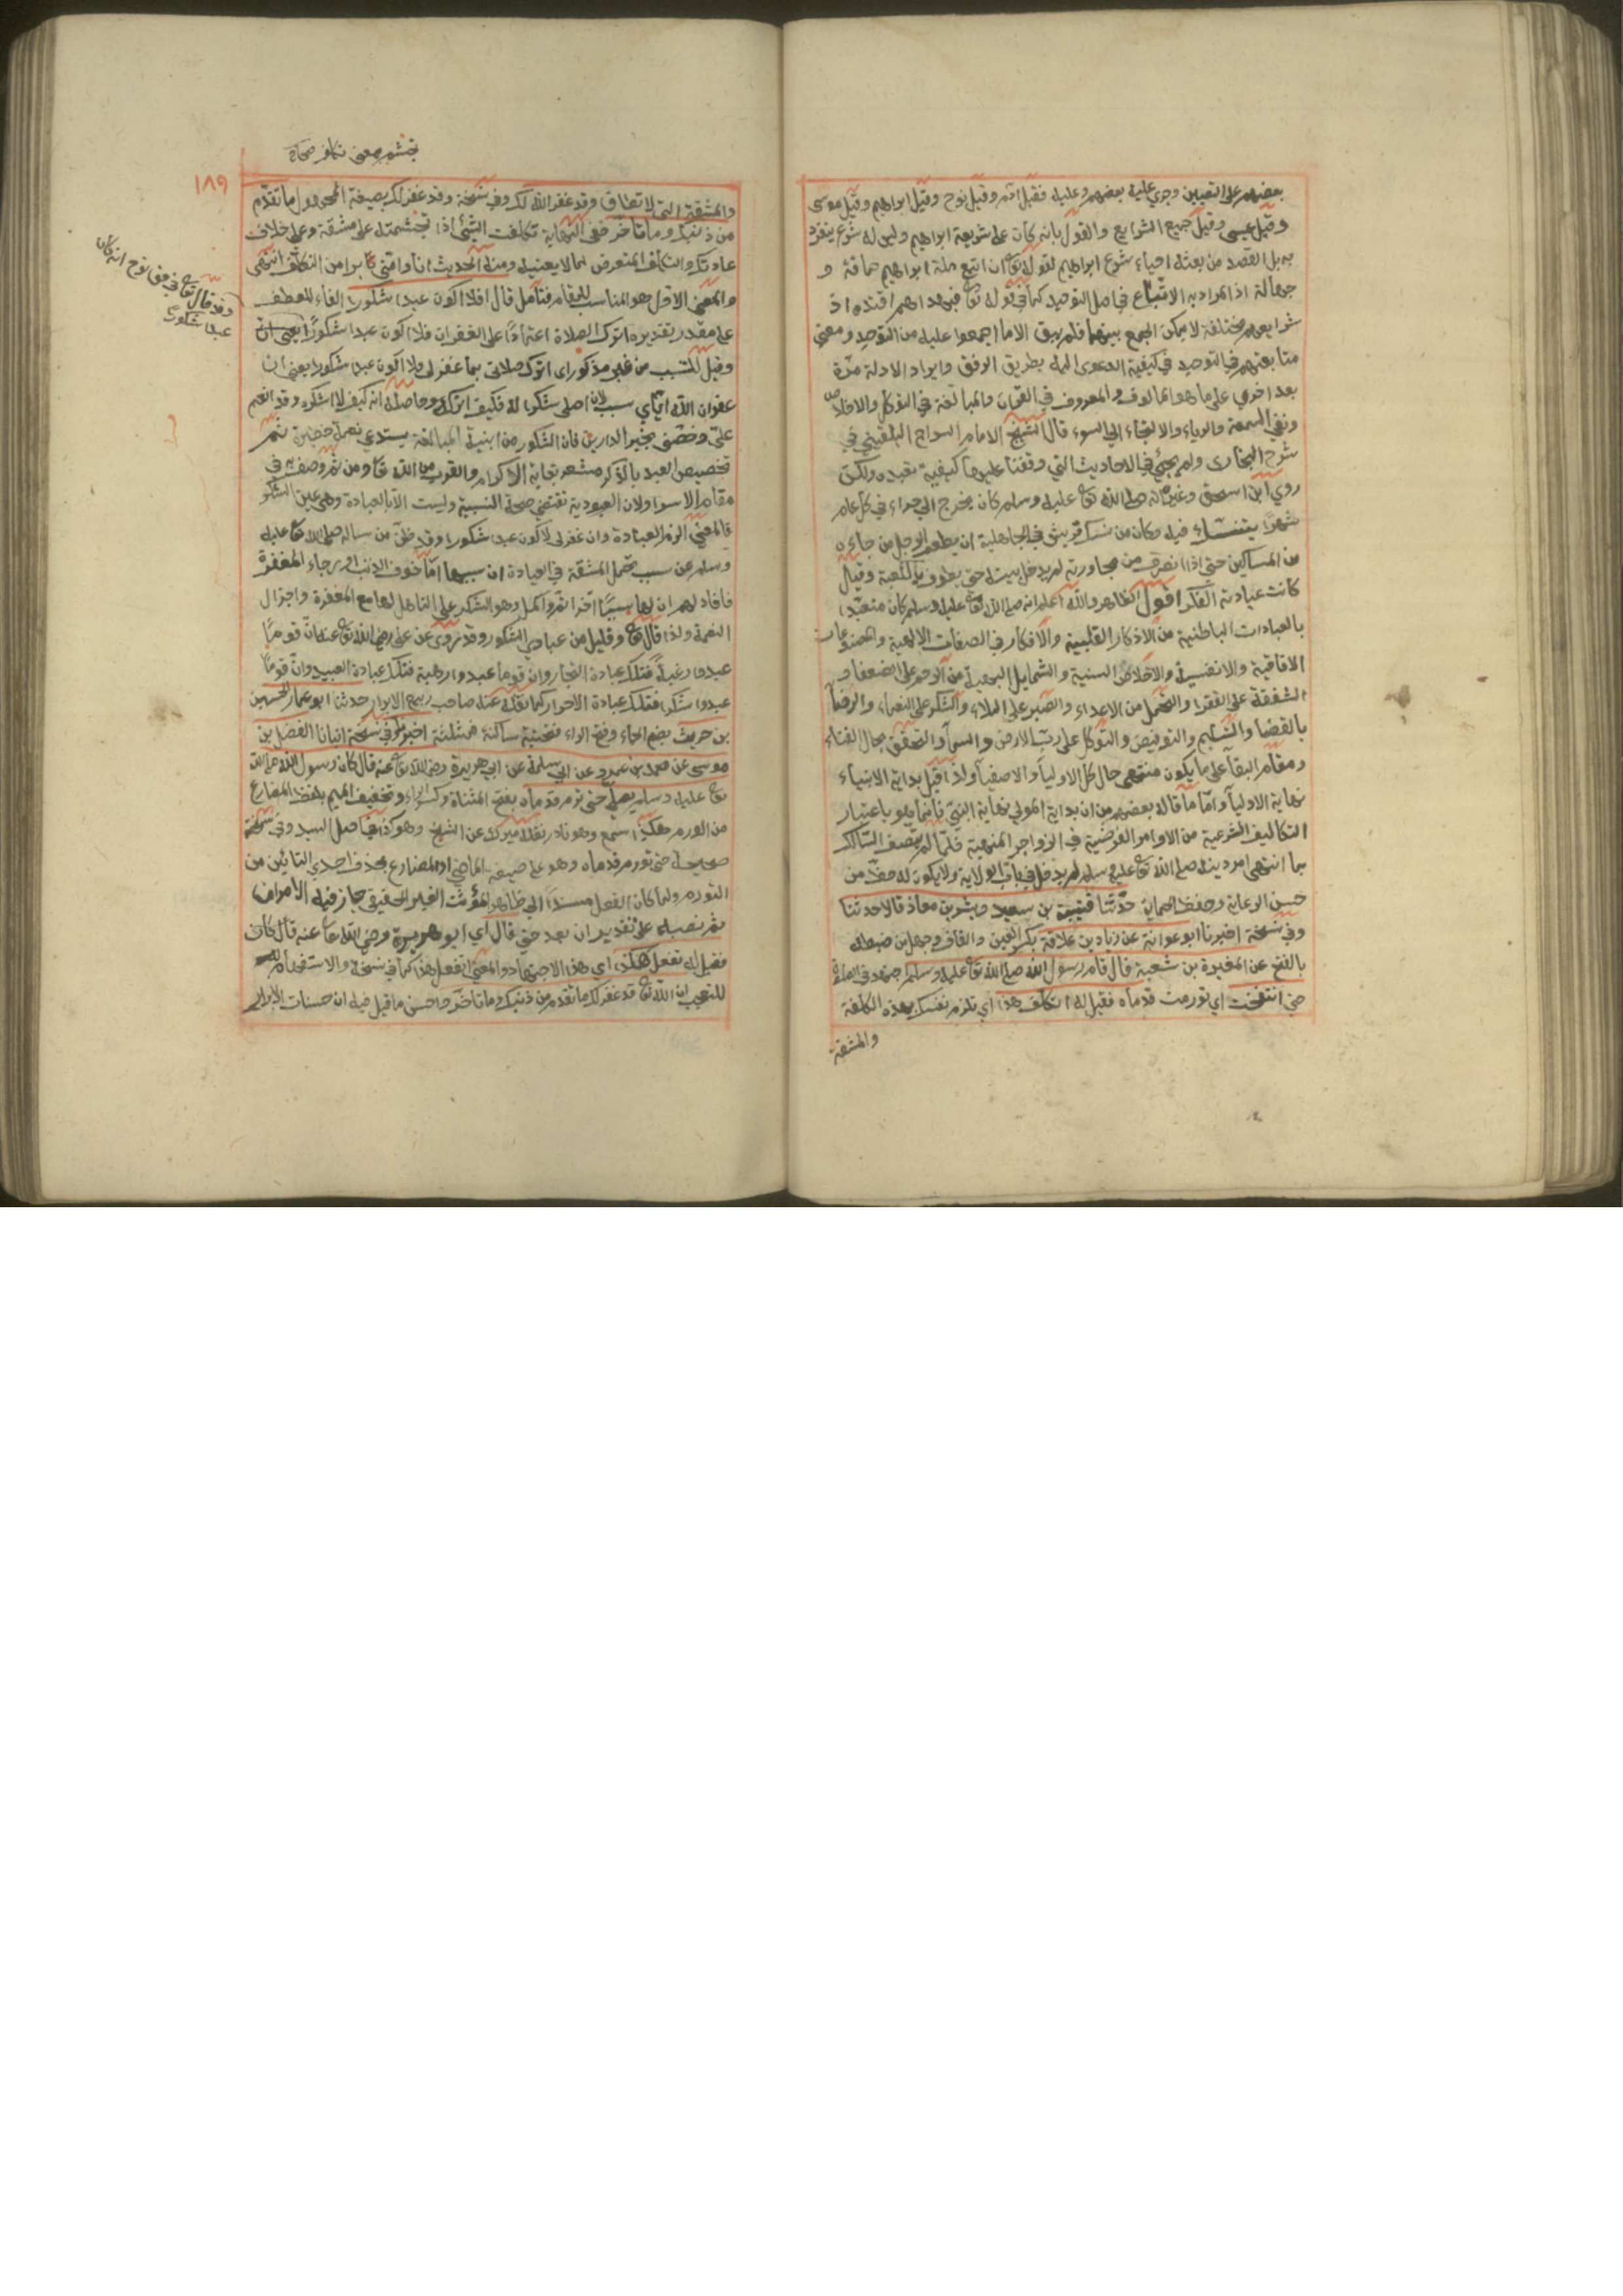 بعضهم على التعيين وجري عليه بعضهم وعليه فقيل آدم وقيل نوح وقيل ابراهيم وقيل موسى
وقيل عيسى وقيل جميع الشرايع والقول بانه كان على شريعة ابراهيم وليس له شرع ينفرد
به بل القصد من بعثه احياء شرع ابراهيم لقوله تع ان اتبع ملة ابراهيم حماقة و
جهالة اذ المراد به الاتباع في اصل التوحيد كما في قوله تع فبهداهم اقتده اذ
شرايعهم مختلفة لا يمكن الجمع بينها فلم يبق الا ما اجمعوا عليه من التوحيد ومعنى
متابعتهم في التوحيد في كيفية الدعوى اليه بطريق الرفق وايراد الادلة مرة
بعد اخري على ما هو المالوف والمعروف في القرآن والمبالغة في التوكل والاخلاص
ونفي السمعة والرياء والالتجاء الي السوء قال الشيخ الامام السراج البلقيني في
شرح البخاري ولم يجئ في الاحاديث التي وقفنا عليها كيفية تعبده ولكن
روي ابن اسحق وغيره انه صلى الله تع عليه وسلم كان يخرج الي حراء في كل عام
شهرا يتنسك فيه وكان من نسك قريش في الجاهلية ان يطعم الرجل من جاءه
من المساكين حتى اذا انصرف من مجاورته لم يدخل بيته حتى يطوف بالكعبة وقيل
كانت عبادته الفكر اقول الظاهر والله اعلم انه صلى الله تع عليه وسلم كان متعبدا
بالعبادات الباطنية من الاذكار القلبية والافكار في الصفات الالهية والمصنوعات
الافاقية والانفسية والاخلاق السنية والشمايل البهية من الرحم على الضعفا و
الشفقة على الفقرا والتحمل من الاعداء والصبر على البلاء والشكر على النعماء والرضا
بالقضا والتسليم والتفويض والتوكل على رب الارض والسماء والتحقق بحال الفناء
ومقام البقا على ما يكون منتهى حال كل الاوليا والاصفيا ولذا قيل بداية الانبياء
نهاية الاوليا واما ما قاله بعضهم من ان بداية الولي نهاية النبي فانما هو باعتبار
التكاليف الشرعية من الاوامر الفرضية في الزواجر المنهية فلما لم يتصف السالك
بما انتهى امر دينه صلى الله تع عليه وسلم لم يدخل في باب الولاية ولا يكون له حظ من
حسن الرعاية وحفظ الحماية حدثنا قتيبة بن سعيد وبشر بن معاذ قالا حدثنا
وفي نسخة اخبرنا ابو عوانة عن زياد بن علاقة بكسر العين والقاف وجهل من ضبطه
بالفتح عن المغيرة بن شعبة قال قام رسول الله صلى الله تع عليه وسلم اجتهد في الصلوة
حتى انتفخت اي تورمت قدماه فقيل له اتكلف هذا اي تلزم نفسك بهذه الكلفة
والمشقة
تجشم معنى تكلف صحاح
١٨٩
والمشقة التي لا تطاق وقد غفر الله لك وفي نسخة وقد غفر لك بصيغة المجهول ما تقدم
من ذنبك وما تأخر ففي النهاية تكلفت الشئ اذا تجشمته على مشقة وعلى خلاف
عادتك والتكلف المتعرض لما لا يعنيه ومنه الحديث انا وامتي براء من التكلف انتهى
والمعنى الاول هو المناسب للمقام فتأمل قال افلا اكون عبدا شكورا الفاء للعطف
على مقدر تقديره ااترك الصلاة اعتمادا على الغفران فلا اكون عبدا شكورا يعني ان
وقيل للتسبب من غير مذكور اي ااترك صلاتي بما غفر لي فلا اكون عبدا شكورا يعني ان
غفران الله اياي سبب لان اصلي شكرا له فكيف اتركه وحاصله انه كيف لا اشكره وقد انعم
علي وخصني بخير الدارين فان الشكور من ابنية المبالغة يستدعي نعمة خطيرة ثم
تخصيص العبد بالذكر مشعر بغاية الاكرام والقرب من الله تع ومن ثم وصفه به في
مقام الاسرا ولان العبودية تقتضي صحة النسبة وليست الا بالعبادة وهي عين الشكر
فالمعنى الزم العبادة وان غفر لي لاكون عبدا شكورا وقد ظن من ساله صلى الله تع عليه
وسلم عن سبب تحمل المشقة في العبادة ان سببها اما خوف الذنب او رجاء المغفرة
فافاد لهم ان لها سببا اخر اتم واكمل وهو الشكر على التاهل لها مع المغفرة واجزال
النعمة ولذا قال تع وقليل من عبادي الشكور وقد روى عن علي رضي الله تع عنه ان قوما
عبدوا رغبة فتلك عبادة التجار وان قوما عبدوا رهبة فتلك عبادة العبيد وان قوما
عبدوا شكرا فتلك عبادة الاحرار كما نقله عنه صاحب ربيع الابرار حدثنا ابو عمار الحسين
بن حريث بضم الحاء وفتح الراء فتحتية ساكنة فمثلثة اخبرنا وفي نسخة انبانا الفضل بن
موسى عن محمد بن عمرو عن ابي سلمة عن ابي هريرة رضي الله تع عنه قال كان رسول الله صلى الله
تع عليه وسلم يصلي حتى ترم قدماه بفتح المثناة وكسر الراء وتخفيف الميم بلفظ المضارع
من الورم هكذا اسمع وهو نادر نقله ميرك عن الشيخ وهو كذا في اصل السيد وفي نسخة
صحيحة حتى تورم قدماه وهو على صيغة الماضي او المضارع بحذف احدي التائين من
التورم ولما كان الفعل مسندا الي ظاهر المؤنث الغير الحقيقي جاز فيه الامران
ثم نصبه على تقدير ان بعد حتى قال اي ابو هريرة رضي الله تعا عنه قال كان
فقيل له تفعل هكذا اي هذا الاجتهاد والمعنى اتفعل هذا كما في نسخة والاستفهام
للتعجب ان الله تع قد غفر لك ما تقدم من ذنبك وما تأخر واحسن ما قيل فيه ان حسنات الابرار
وقد قال تع في حق نوح انه كان
عبدا شكورا